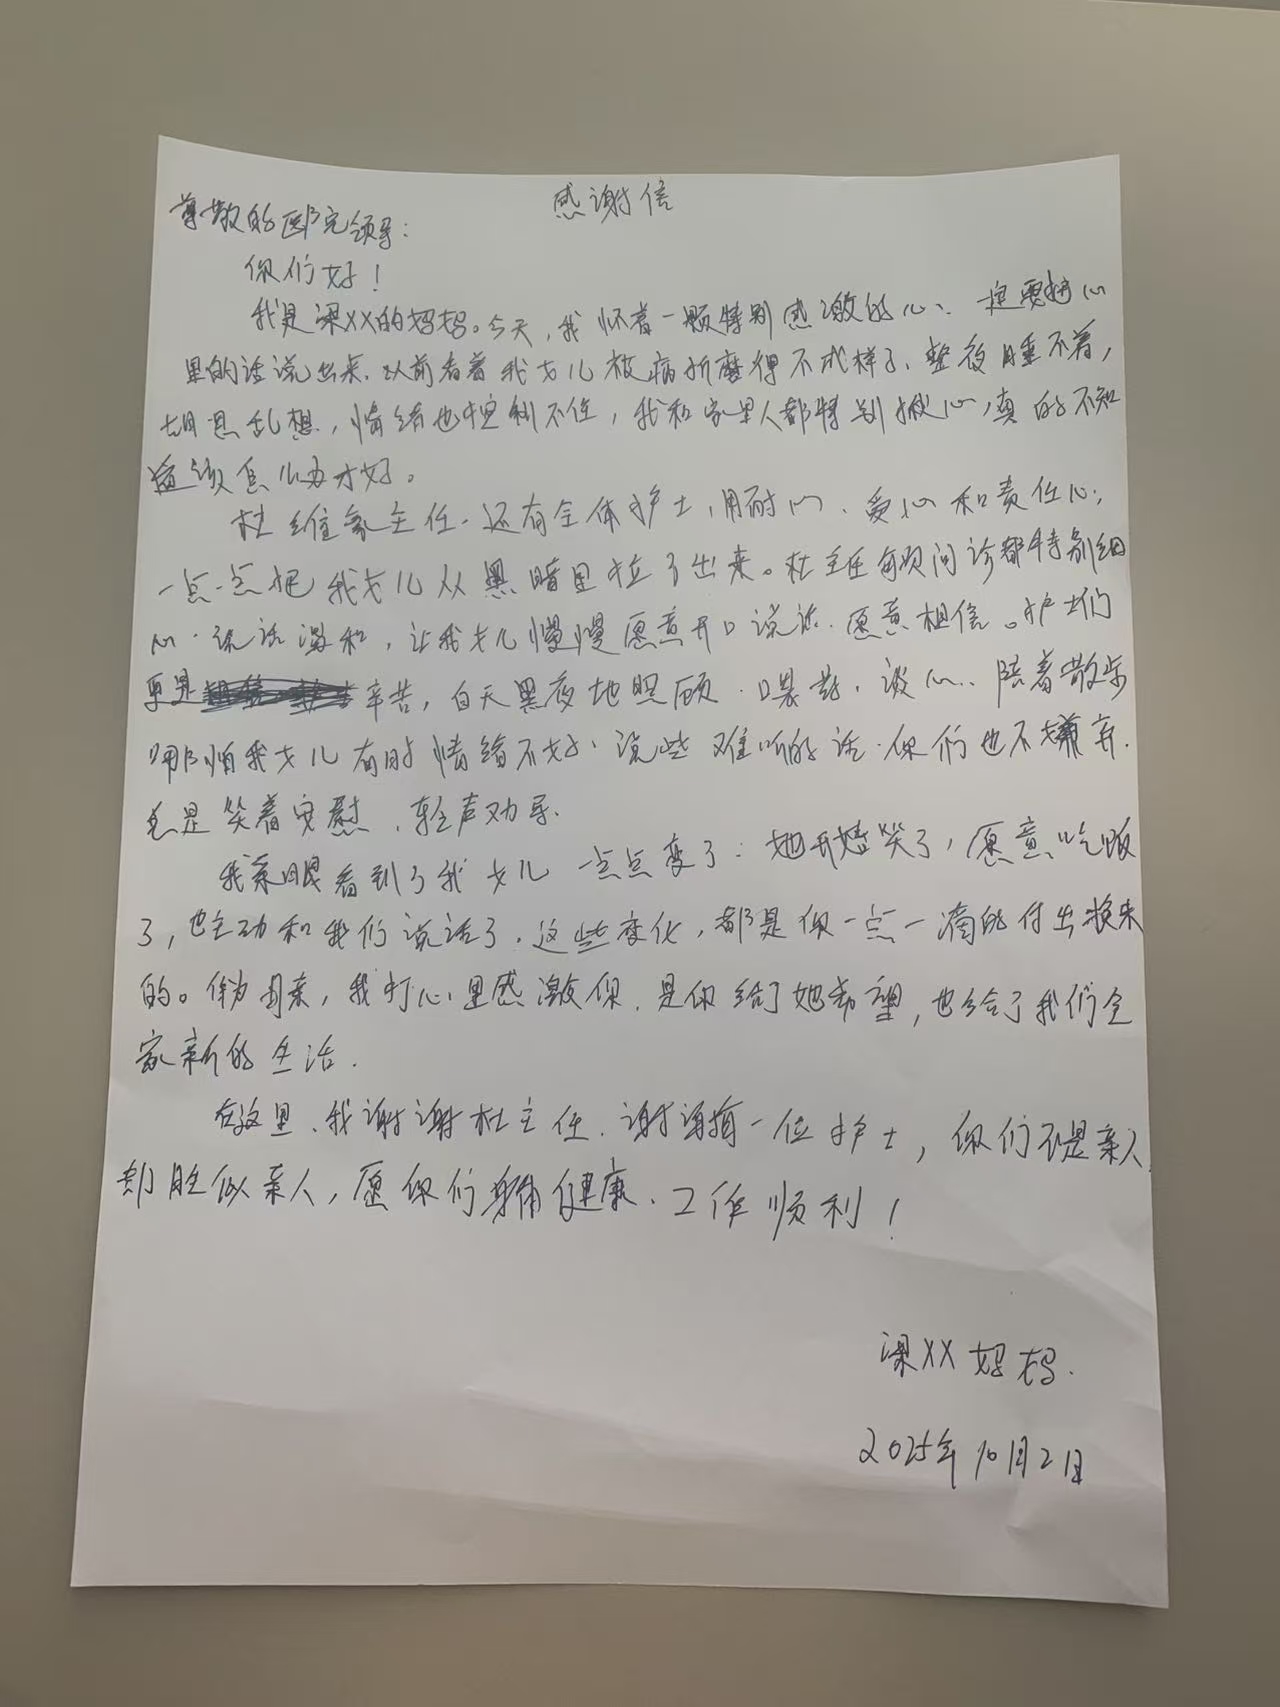 感谢信
尊敬的医院领导：
你们好！
我是梁XX的妈妈。今天，我怀着一颗特别感激的心、一定要把心
里的话说出来。以前看着我女儿被病折磨得不成样子、整夜睡不着，
胡思乱想，情绪也控制不住，我和家里人都特别揪心，真的不知
道该怎么办才好。
杜维家主任、还有全体护士，用耐心、爱心和责任心，
一点一点把我女儿从黑暗里拉了出来。杜主任每次问诊都特别细
心、说话温和，让我女儿慢慢愿意开口说话、愿意相信。护士们
更是辛苦，白天黑夜地照顾、喂药、谈心、陪着散步
哪怕我女儿有时情绪不好、说些难听的话、你们也不嫌弃、
总是笑着安慰、轻声劝导.
我亲眼看到了我女儿一点点变了：她开始笑了，愿意吃饭
了，也主动和我们说话了。这些变化，都是你一点一滴的付出换来
的。作为母亲，我打心里感激你、是你给了她希望，也给了我们全
家新的生活.
在这里、我谢谢杜主任、谢谢每一位护士，你们不是亲人、
却胜似亲人，愿你们身体健康、工作顺利！
梁XX妈妈.
2025年10月2日